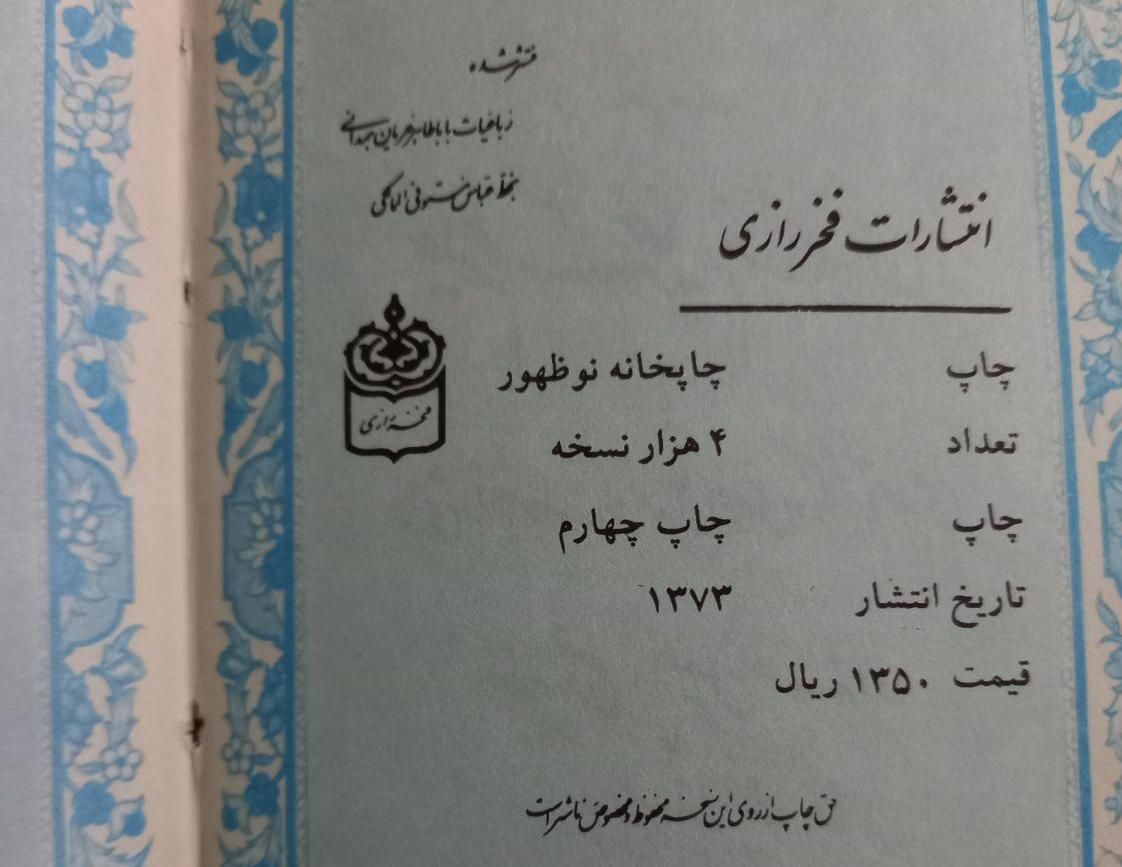 منتشر شده
رباعیات باباطاهر عریان همدانی
بخط عباس مستوفی الممالکی
انتشارات فخررازی
چاپ چاپخانه نوظهور
تعداد ۴ هزار نسخه
چاپ چاپ چهارم
تاریخ انتشار ۱۳۷۳
قیمت ۱۳۵۰ ریال
فخررازی
حق چاپ از روی این نسخه محفوظ و مخصوص ناشر است